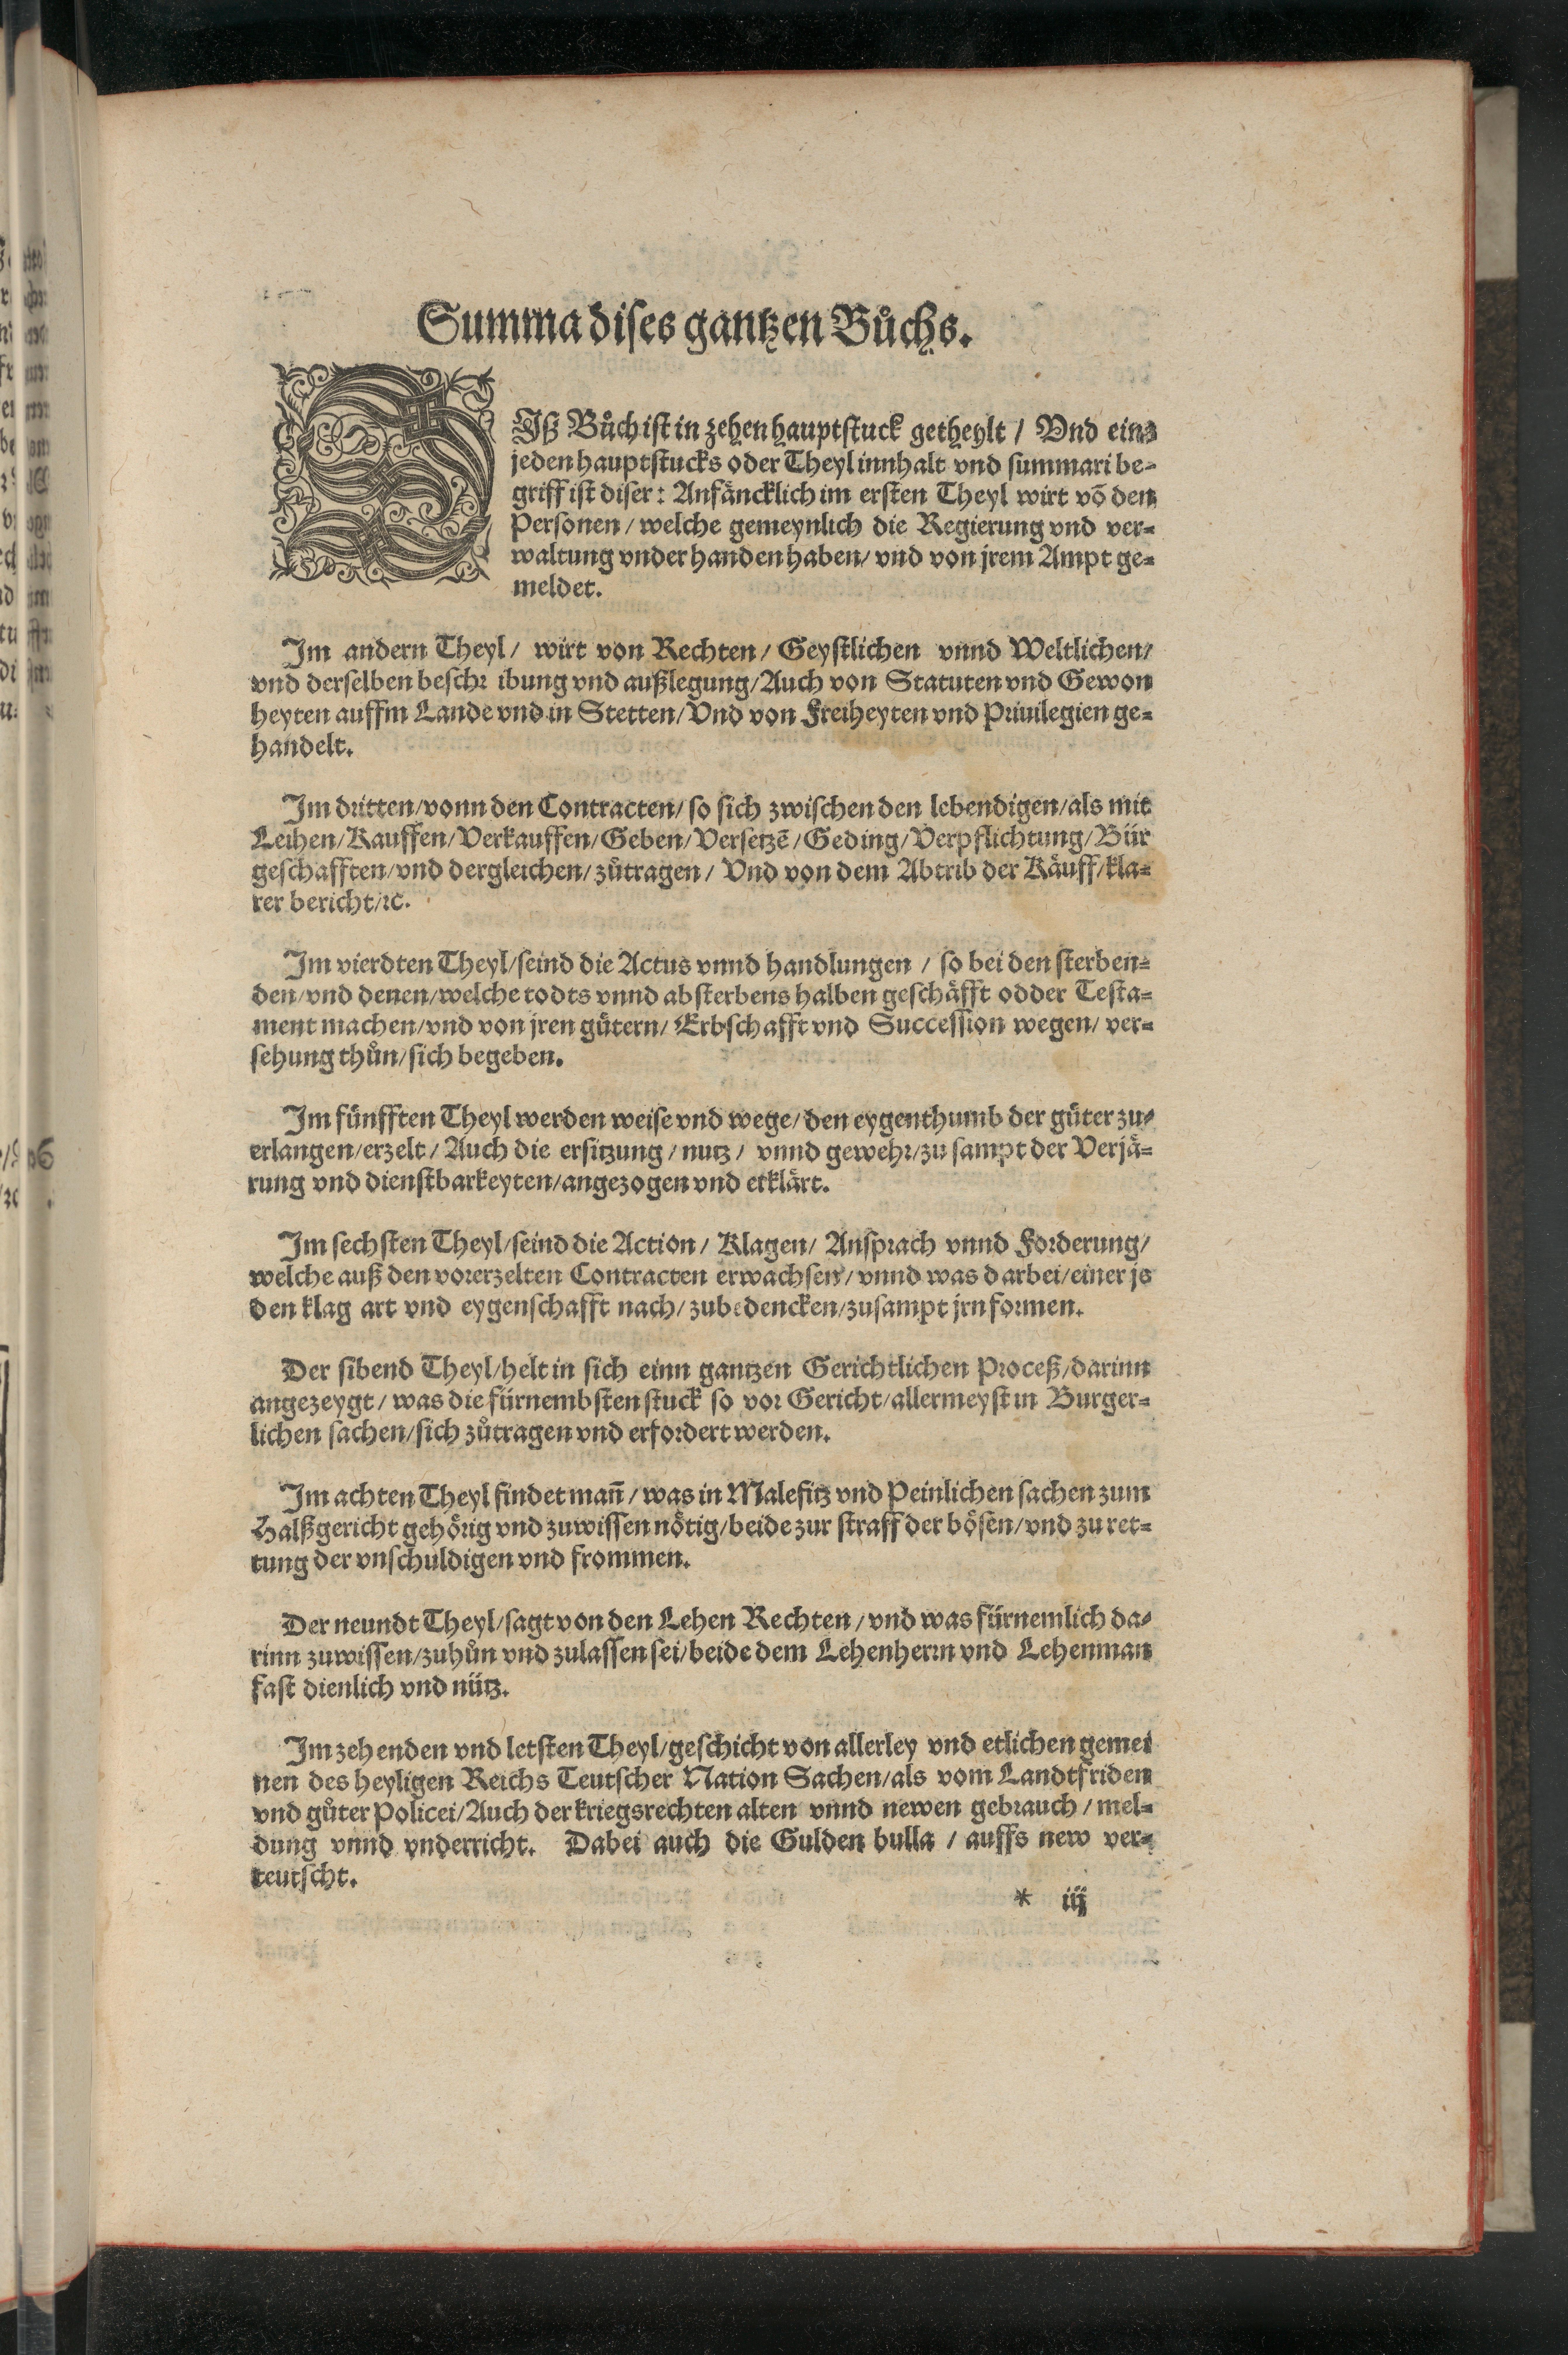 Summa dises gantzen Bůchs.
DIß Bůch ist in zehen hauptstuck getheylt / Vnd eins
jeden hauptstucks oder Theyl innhalt vnd summari be-
griff ist diser: Anfäncklich im ersten Theyl wirt võ den
Personen / welche gemeynlich die Regierung vnd ver-
waltung vnder handen haben / vnd von jrem Ampt ge-
meldet.
Im andern Theyl / wirt von Rechten / Geystlichen vnnd Weltlichen /
vnd derselben beschr ibung vnd außlegung / Auch von Statuten vnd Gewon
heyten auffm Lande vnd in Stetten / Vnd von Freiheyten vnd Priuilegien ge-
handelt.
Im dritten / vonn den Contracten / so sich zwischen den lebendigen / als mit
Leihen / Kauffen / Verkauffen / Geben / Versetzē / Geding / Verpflichtung / Bür
geschafften / vnd dergleichen / zůtragen / Vnd von dem Abtrib der Käuff / kla-
rer bericht / ꝛc.
Im vierdten Theyl / seind die Actus vnnd handlungen / so bei den sterben-
den / vnd denen / welche todts vnnd absterbens halben geschäfft odder Testa-
ment machen / vnd von jren gütern / Erbschafft vnd Succession wegen / ver-
sehung thůn / sich begeben.
Im fünfften Theyl werden weise vnd wege / den eygenthumb der güter zu-
erlangen / erzelt / Auch die ersitzung / nutz / vnnd gewehr / zu sampt der Verjä-
rung vnd dienstbarkeyten / angezogen vnd etklärt.
Im sechsten Theyl / seind die Action / Klagen / Ansprach vnnd Forderung /
welche auß den vorerzelten Contracten erwachsen / vnnd was darbei / einer je
den klag art vnd eygenschafft nach / zubedencken / zusampt jrn formen.
Der sibend Theyl / helt in sich einn gantzen Gerichtlichen Proceß / darinn
angezeygt / was die fürnembsten stuck so vor Gericht / allermeyst in Burger-
lichen sachen / sich zůtragen vnd erfordert werden.
Im achten Theyl findet mañ / was in Malefitz vnd Peinlichen sachen zum
Halßgericht gehörig vnd zuwissen nötig / beide zur straff der bösen / vnd zu ret-
tung der vnschuldigen vnd frommen.
Der neundt Theyl / sagt von den Lehen Rechten / vnd was fürnemlich da-
rinn zuwissen / zuhůn vnd zulassen sei / beide dem Lehenherrn vnd Lehenman
fast dienlich vnd nütz.
Im zehenden vnd letsten Theyl / geschicht von allerley vnd etlichen gemei
nen des heyligen Reichs Teutscher Nation Sachen / als vom Landtfriden
vnd gůter Policei / Auch der kriegsrechten alten vnnd newen gebrauch / mel-
dung vnnd vnderricht. Dabei auch die Gulden bulla / auffs new ver-
teutscht.
* iij